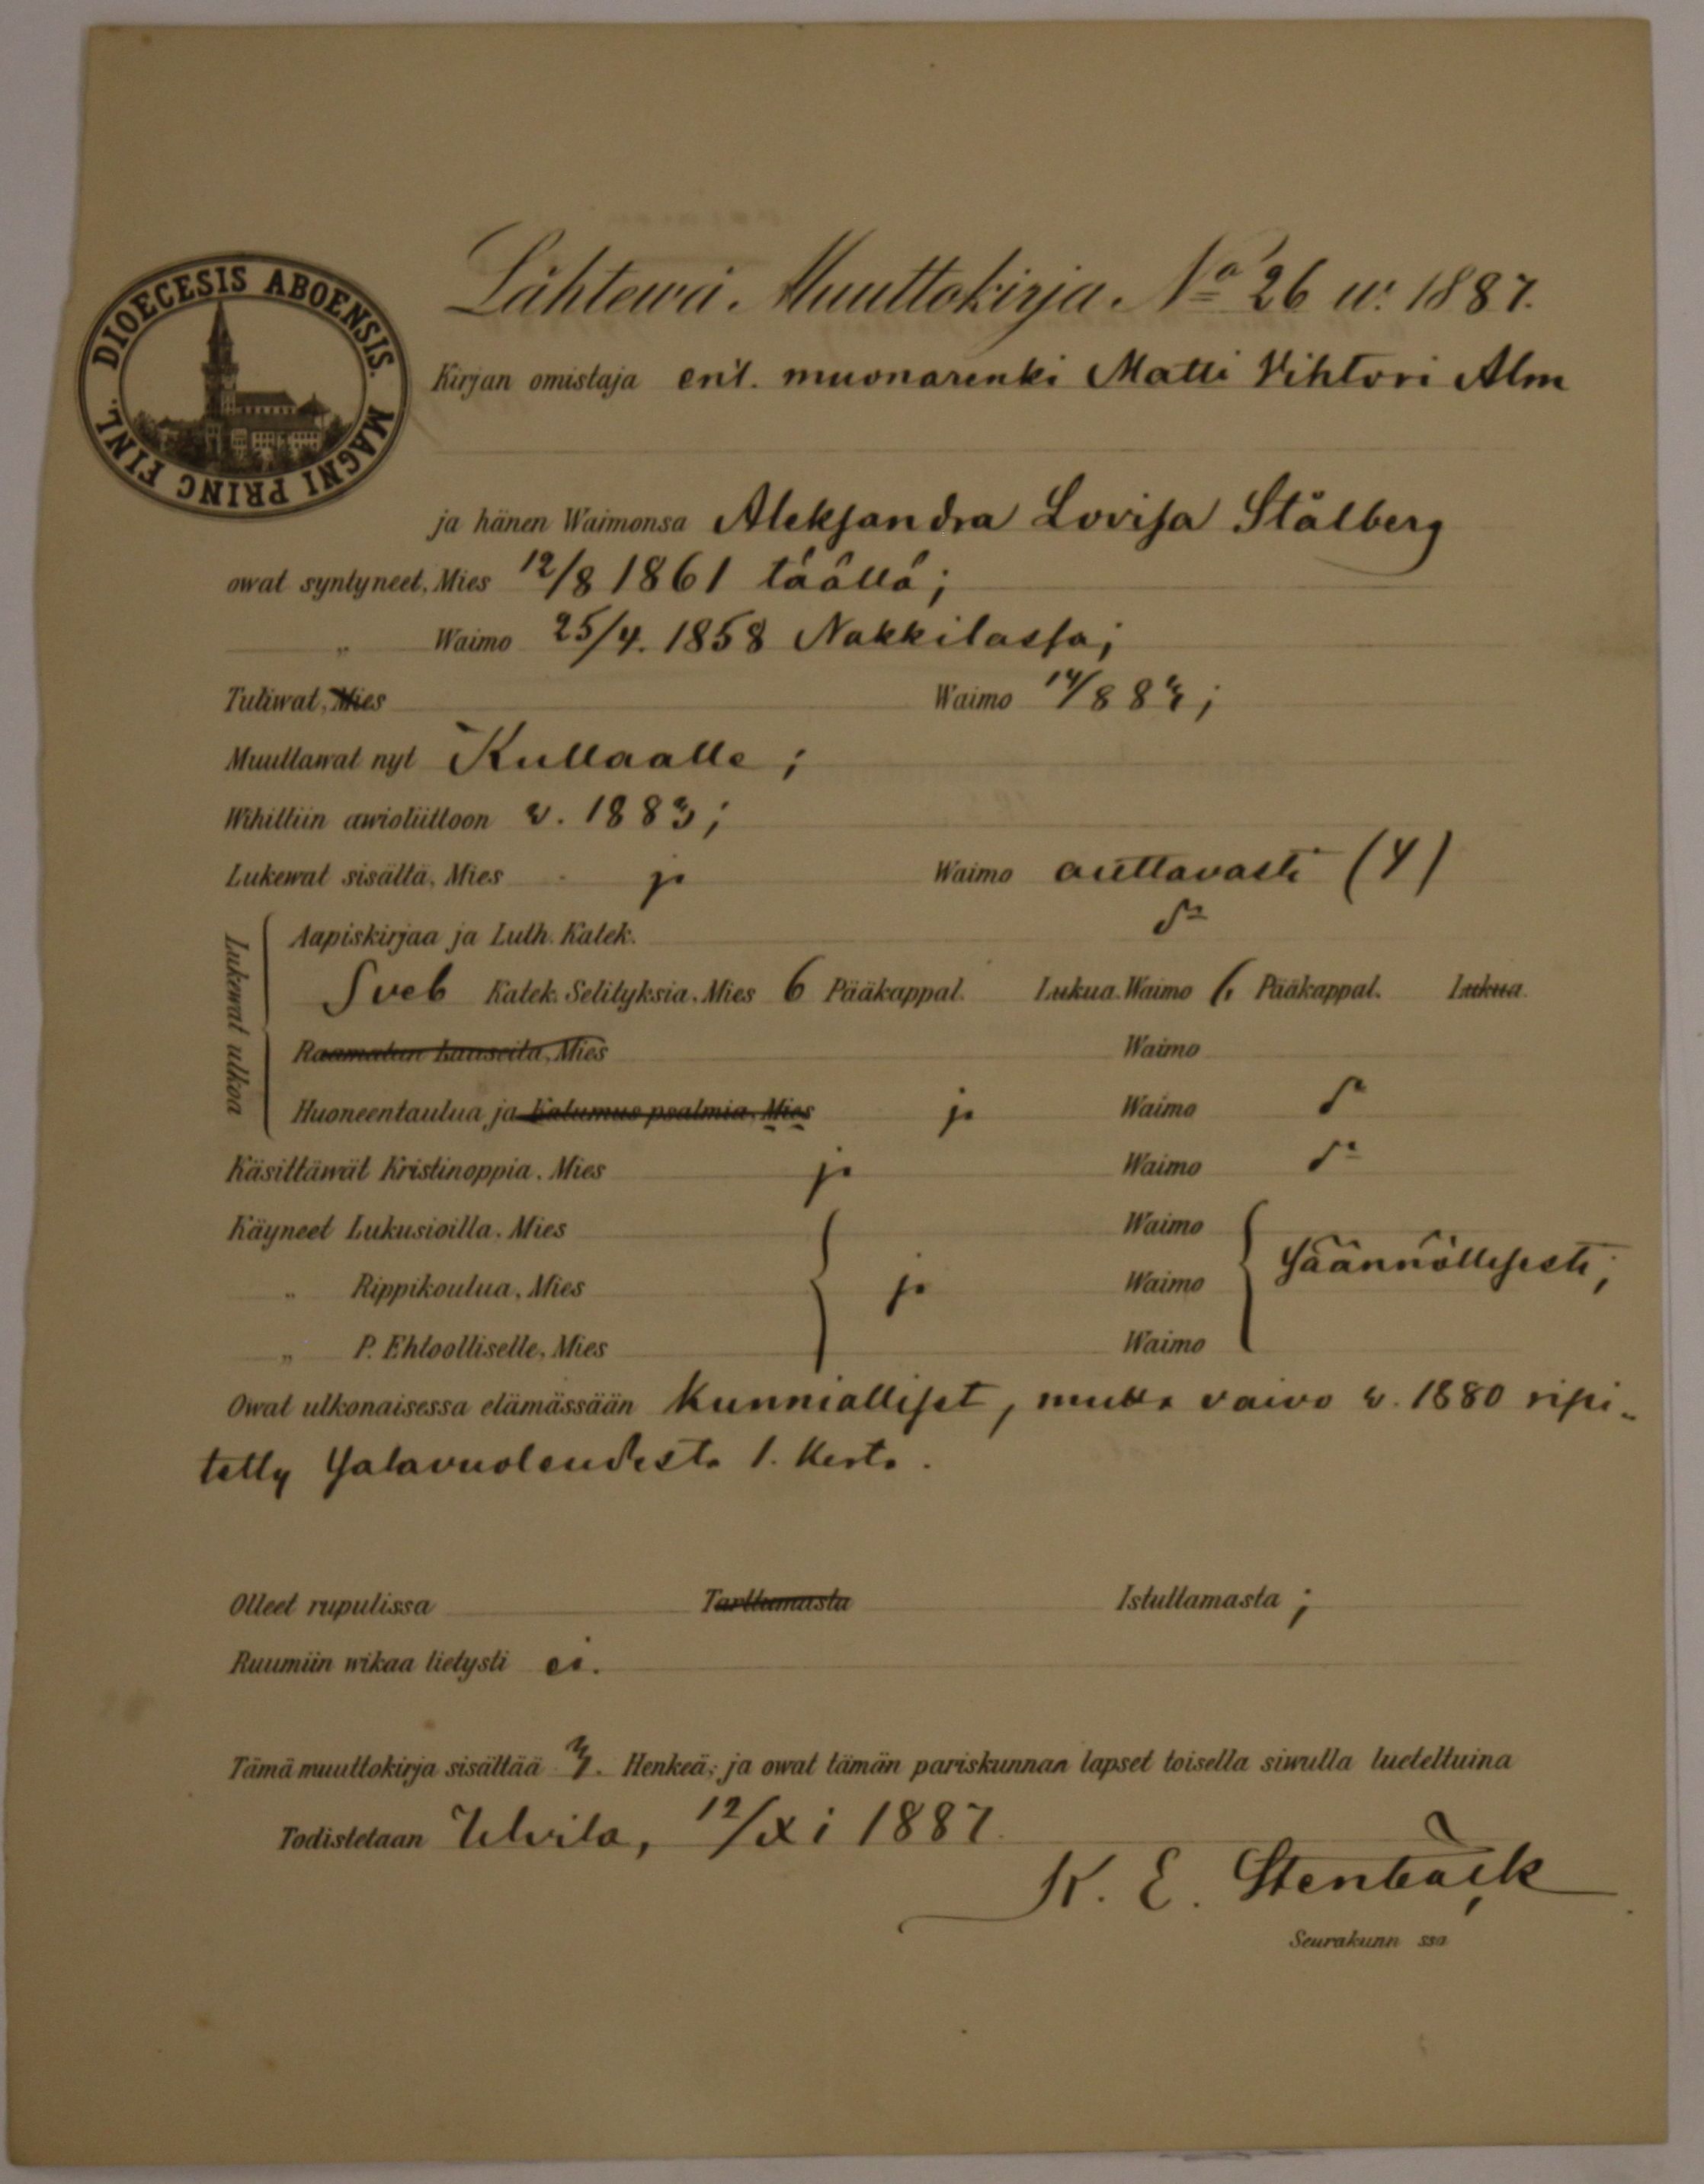 DIOECESIS ABOENSIS. MAGNI PRINC FINL.
Lähtewä. Muuttokirja. No 26 w. 1887.
Kirjan omistaja ent. muonarenki Matti Vihtori Alm
ja hänen Waimonsa Aleksandra Lovisa Stålberg
owat syntyneet, Mies 12/8 1861 täällä;
„ Waimo 25/4. 1858 Nakkilassa;
Tuliwat, Mies Waimo 14/8 83;
Muuttawat nyt Kullaalle;
Wihittiin awioliittoon v. 1883;
Lukewat sisältä, Mies ja Waimo auttavasti (4)
Lukewat ulkoa
Aapiskirjaa ja Luth. Katek.
Sveb Katek. Selityksiä. Mies 6 Pääkappal. Lukua. Waimo 6 Pääkappal. Lukua.
Raamatun Lauseita, Mies Waimo
Huoneentaulua ja Katumus psalmia, Mies ja Waimo
Käsittäwät Kristinoppia. Mies ja Waimo
Käyneet Lukusioilla. Mies Waimo
„ Rippikoulua, Mies ja Waimo säännöllisesti;
„ P. Ehtoolliselle, Mies Waimo
Owat ulkonaisessa elämässään kunnialliset, mutta vaivo v. 1880 ripi-
tetty salavuoteudesta 1. kerta.
Olleet rupulissa Tarttumasta Istuttamasta;
Ruumiin wikaa tietysti ei.
Tämä muuttokirja sisältää Henkeä; ja owat tämän pariskunnan lapset toisella siwulla lueteltuina
Todistetaan Ulvila, 12/XI 1887.
K. E. Stenbäck
Seurakunn ssa